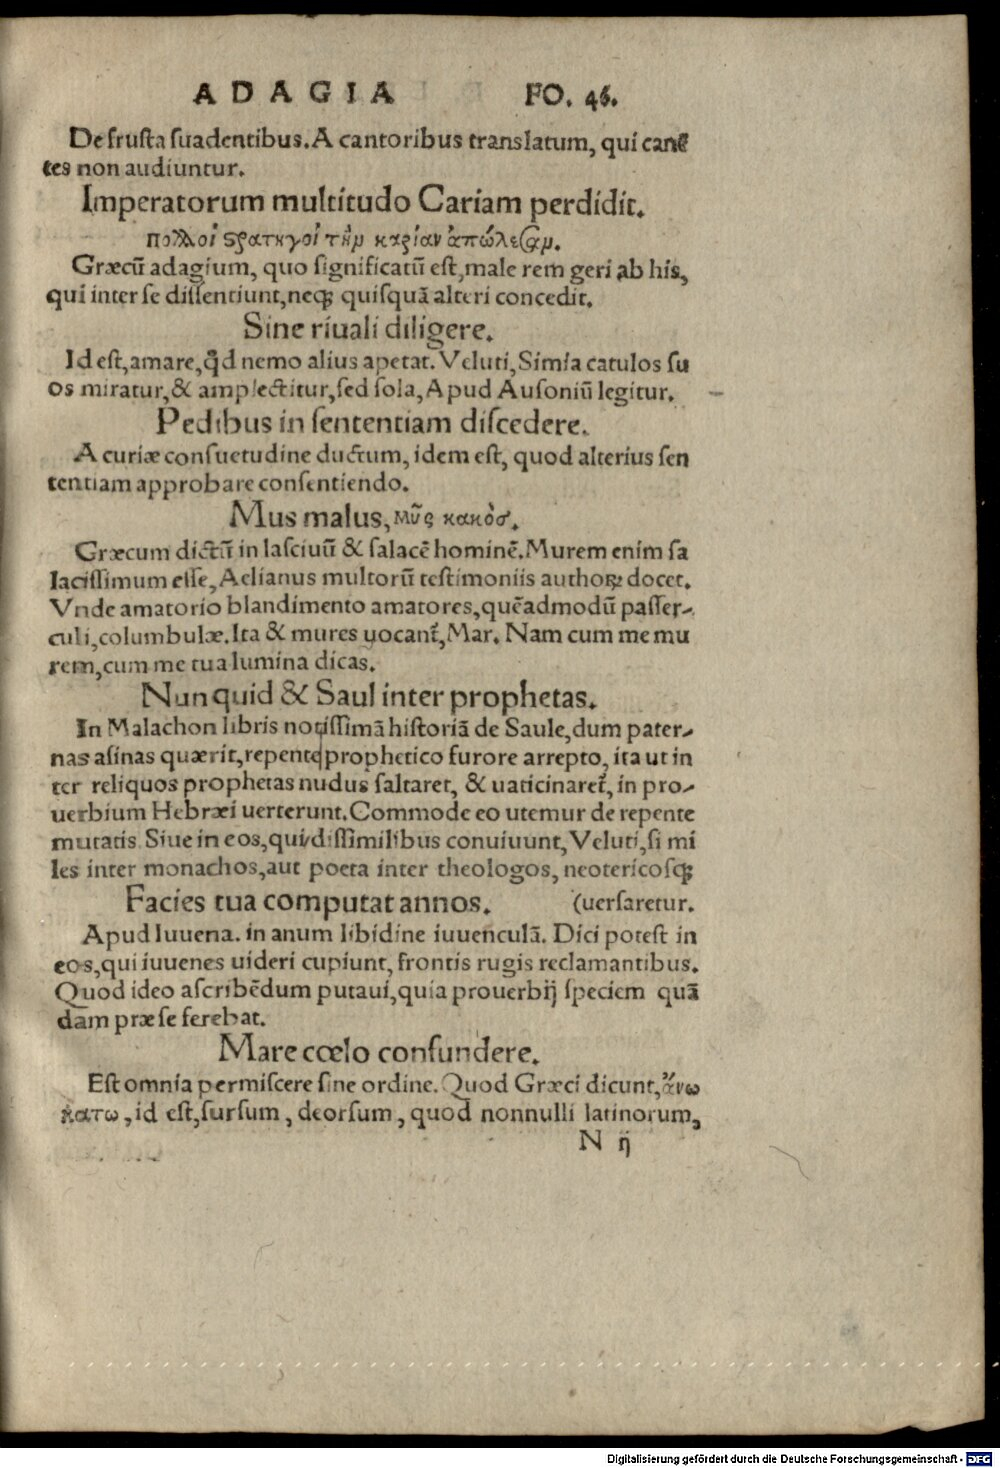 ADAGIA FO. 46.
De frusta suadentibus. A cantoribus translatum, qui canē
tes non audiuntur.
Imperatorum multitudo Cariam perdidit.
πολλοὶ ϛρατηγοὶ τὴμ καρίαν ἀπώλεσαμ.
Græcū adagium, quo significatū est, male rem geri ab his,
qui inter se dissentiunt, neqꝫ quisquā alteri concedit.
Sine riuali diligere.
Id est, amare, qd̓ nemo alius apetat. Veluti, Simia catulos su
os miratur, & amplectitur, sed sola, Apud Ausoniū legitur.
Pedibus in sententiam discedere.
A curiæ consuetudine ductum, idem est, quod alterius sen
tentiam approbare consentiendo.
Mus malus, μῦς κακὸσ.
Græcum dictū in lasciuū & salacē hominē. Murem enim sa
lacissimum esse, Aelianus multorū testimoniis authoꝝ docet.
Vnde amatorio blandimento amatores, quēadmodū passer-
culi, columbulæ. Ita & mures uocant̃, Mar. Nam cum me mu
rem, cum me tua lumina dicas.
Nunquid & Saul inter prophetas.
In Malachon libris notissimā historiā de Saule, dum pater-
nas asinas quærit, repente prophetico furore arrepto, ita ut in
ter reliquos prophetas nudus saltaret, & uaticinaret̃, in pro-
uerbium Hebræi uerterunt. Commode eo utemur de repente
mutatis Siue in eos, qui dissimilibus conuiuunt, Veluti, si mi
les inter monachos, aut poeta inter theologos, neotericosqꝫ
Facies tua computat annos. (uersaretur.
Apud Iuuena. in anum libidine iuuenculā. Dici potest in
eos, qui iuuenes uideri cupiunt, frontis rugis reclamantibus.
Quod ideo ascribēdum putaui, quia prouerbij speciem quā
dam præ se ferebat.
Mare cœlo confundere.
Est omnia permiscere sine ordine. Quod Græci dicunt, ἄνω
κατω, id est, sursum, deorsum, quod nonnulli latinorum,
N ij
Digitalisierung gefördert durch die Deutsche Forschungsgemeinschaft - DFG